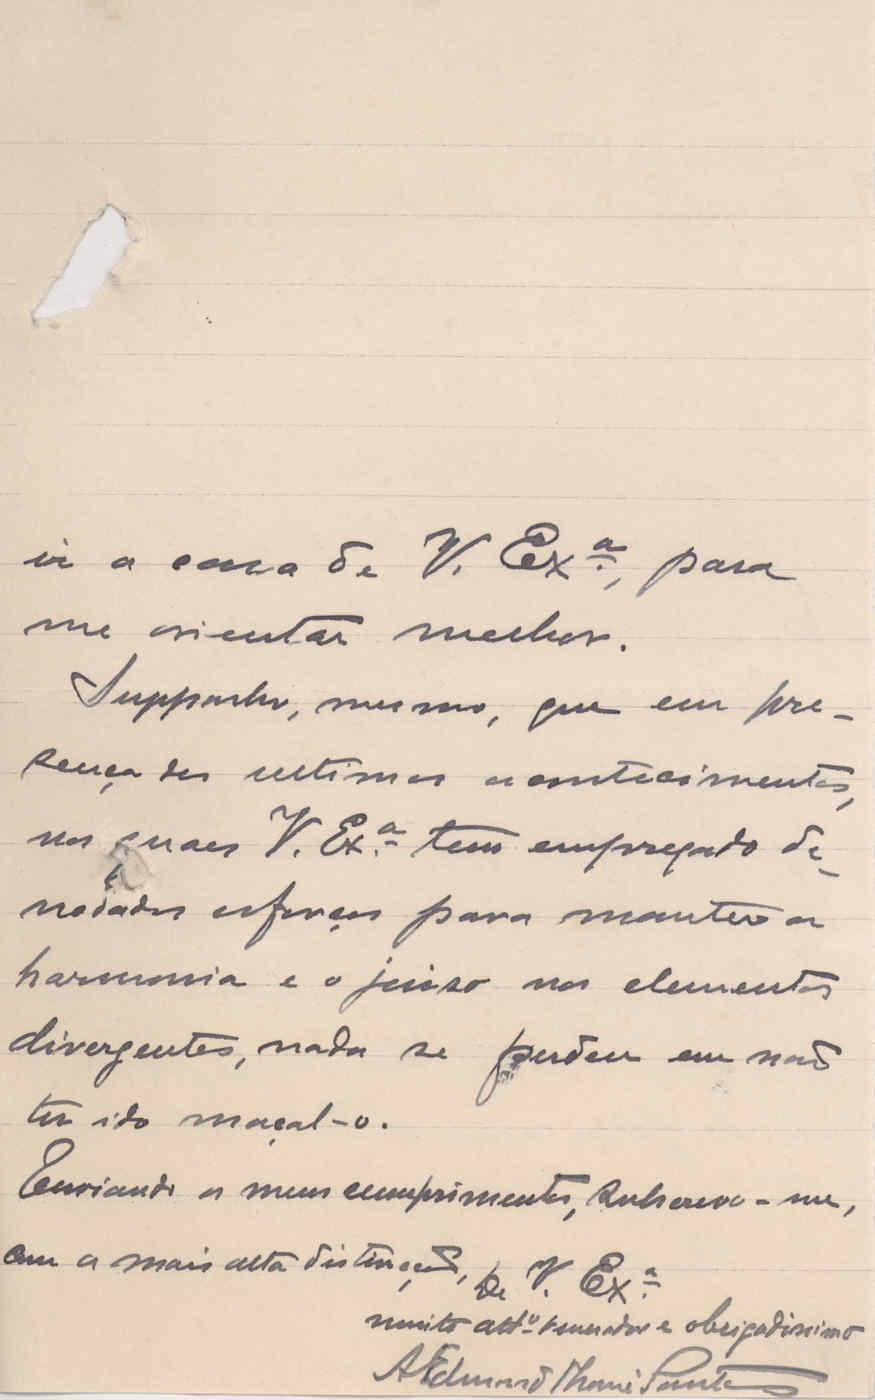 ir a casa de V. Exª, para
me orientar melhor.
Supponho, mesmo, que em pre-
sença dos ultimos acontecimentos,
nos quaes V. Exª tem empregado de-
nodados esforços para manter a
harmonia e o juiso nos elementos
divergentes, nada se perdeu em não
ter ido maçal-o.
Enviando os meus cumprimentos, subscrevo-me,
com a mais alta distincção, de V. Exª
muito attº venerador e obrigadissimo
Eduardo Thomé Santos